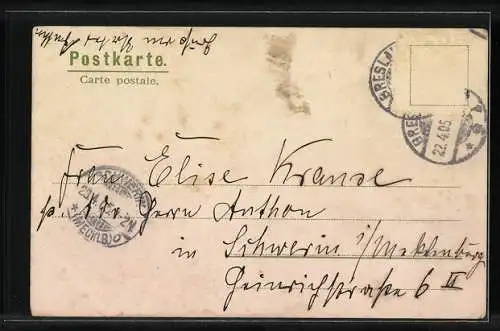 Postkarte.
Carte postale.
BRESLAU
22.4.05
Frau Elise Krause
Herrn Anthon
in Schwerin i/Mecklenburg
Heinrichstraße 6 II
SCHWERIN
(MECKLB)